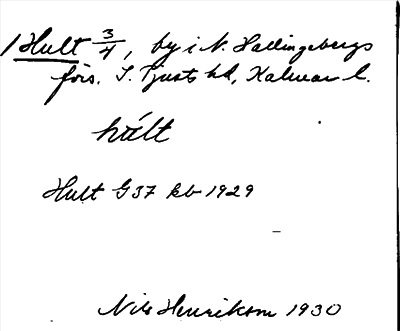 1 Hult 3/4, by i N. Hallingebergs
förs. S. Tjusts hd, Kalmar l.
hált
Hult G37 kb 1929
Nils Henrikson 1930